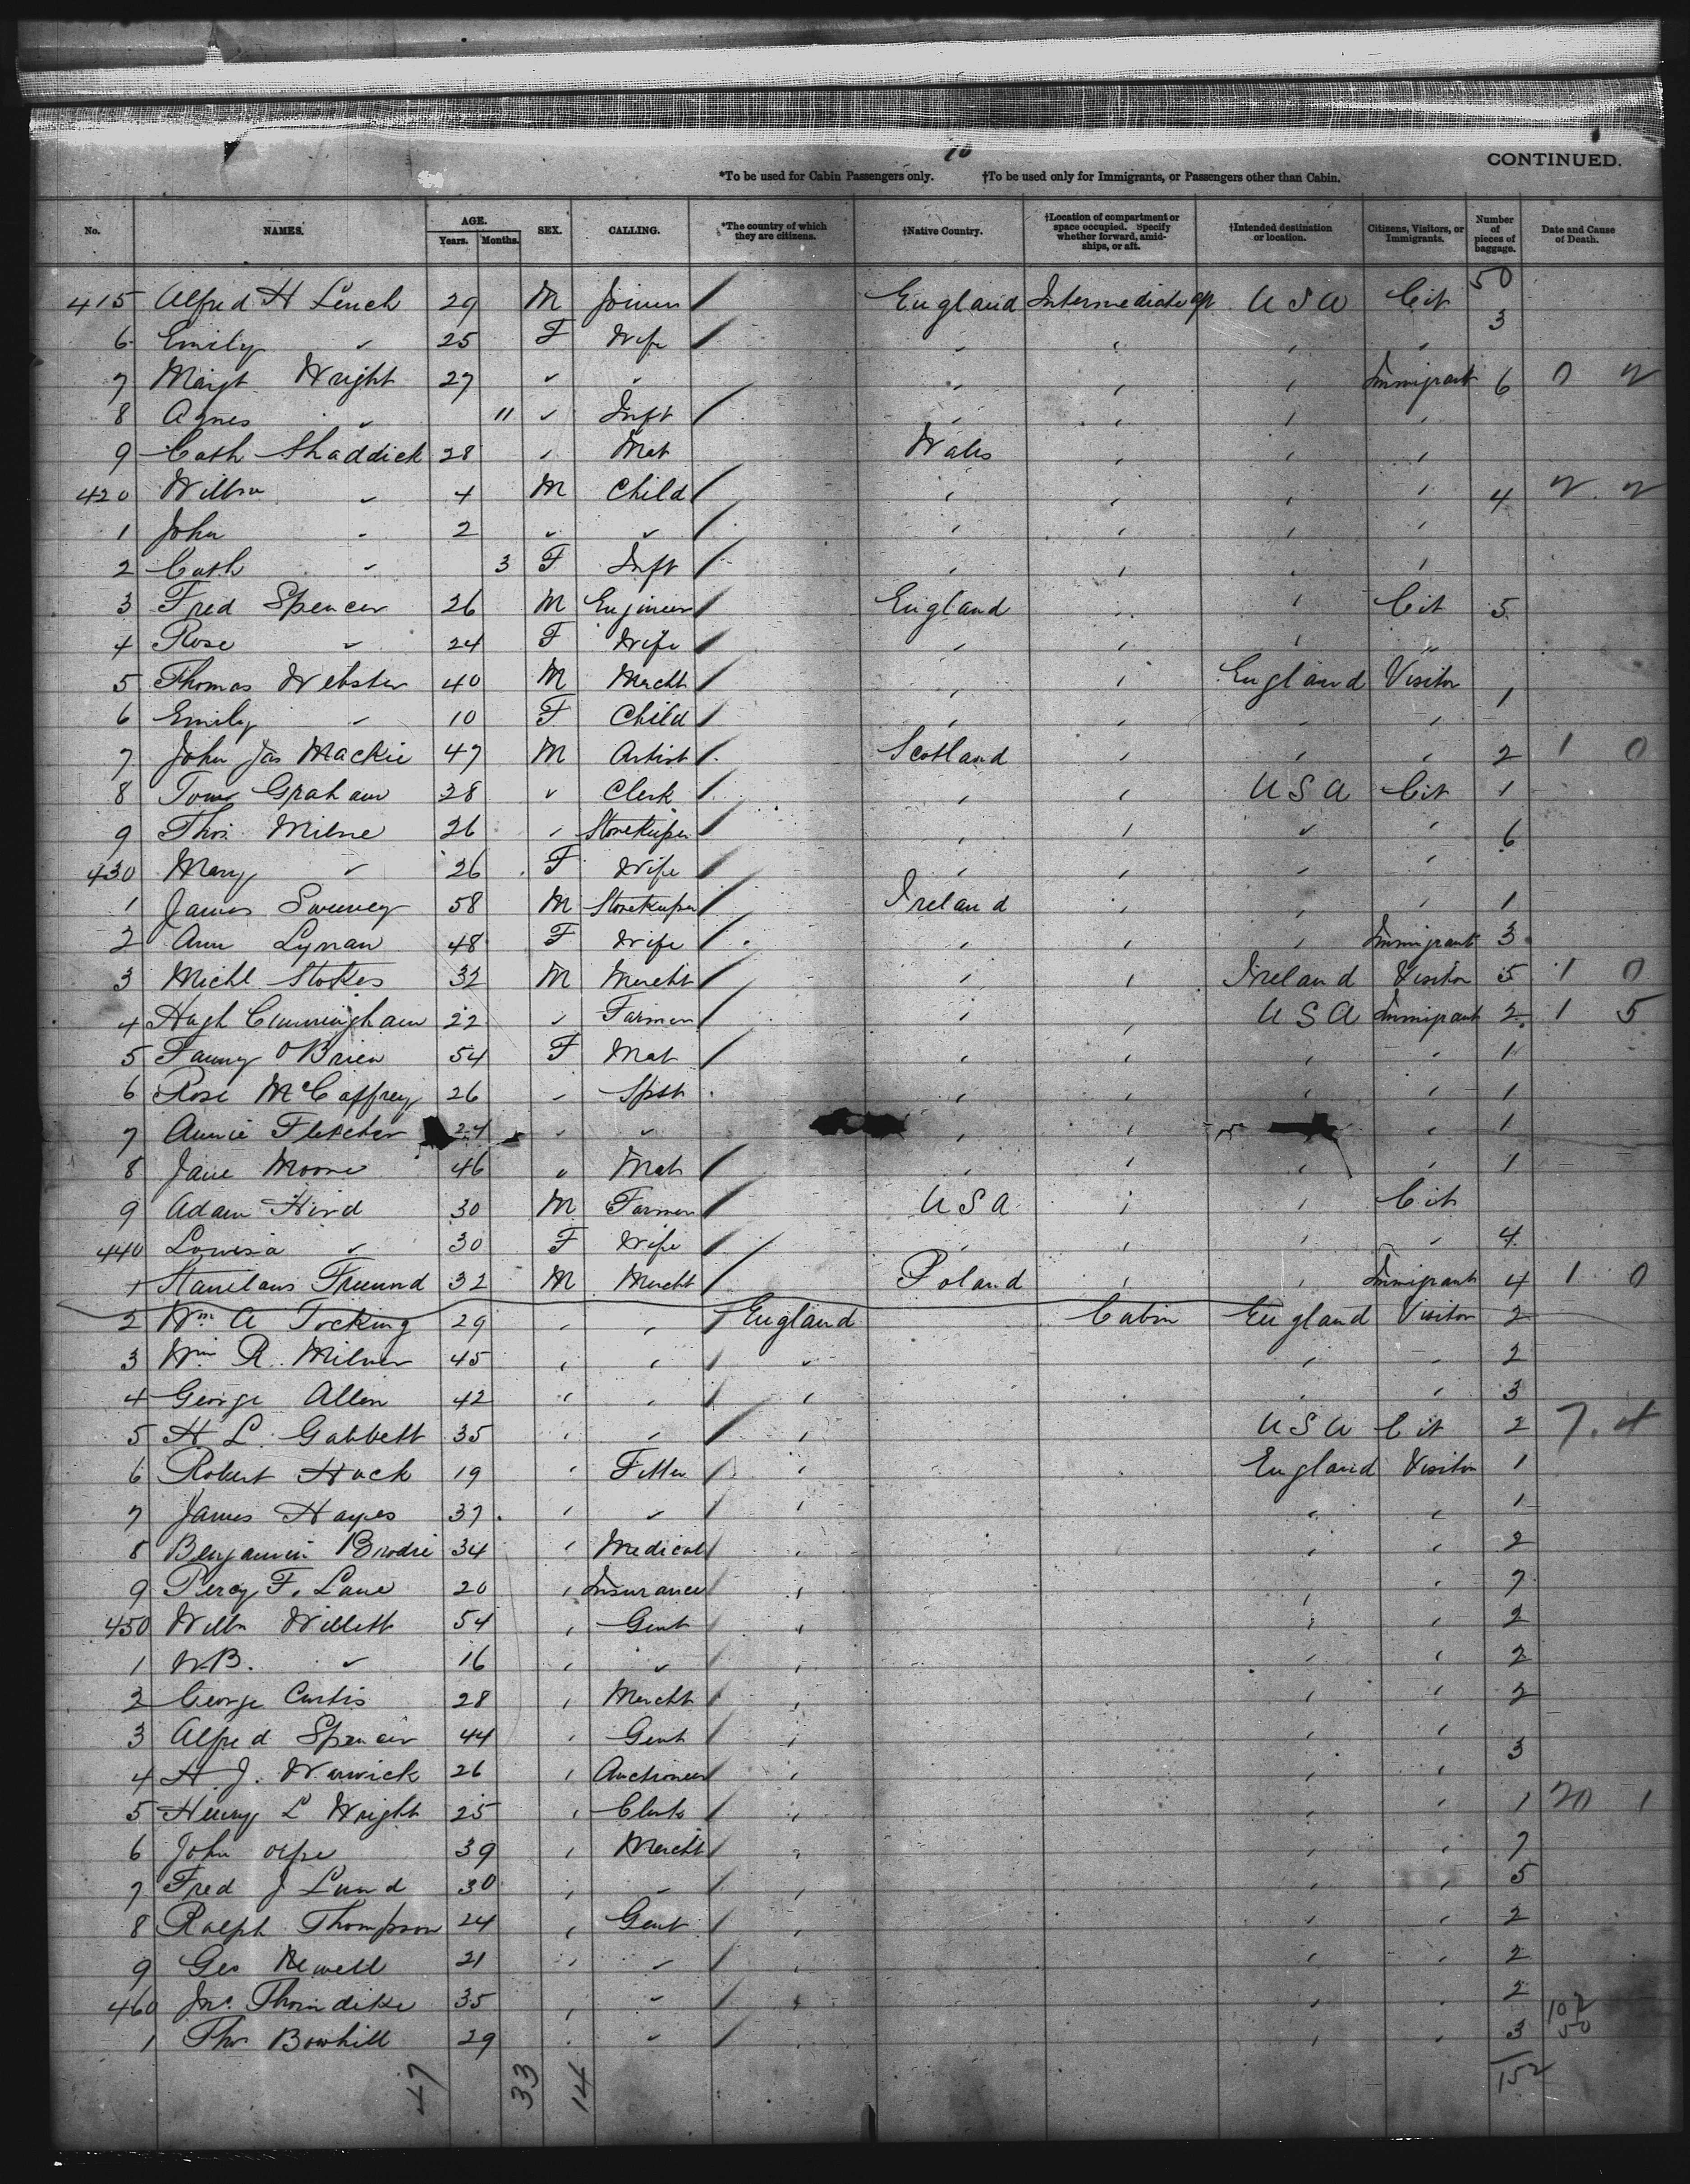 10
CONTINUED.
*To be used for Cabin Passengers only. †To be used only for Immigrants, or Passengers other than Cabin.
No. NAMES. AGE. Years. Months. SEX. CALLING. *The country of which they are citizens. †Native Country. †Location of compartment or space occupied. Specify whether forward, amidships, or aft. †Intended destination or location. Citizens, Visitors, or Immigrants. Number of pieces of baggage. Date and Cause of Death.
50
415 Alfred H Leuch 29 M Joiner / England Intermediate aft USA Cit
3
6 Emily " 25 F Wife / " " " "
7 Margt Wright 27 " " " " " Immigrant 6 0 2
8 Agnes " 11 " Inft / " " " "
9 Cath Shaddick 28 " Mat Wales " " "
420 Willm " 4 M Child / " " " " 4 2 2
1 John " 2 " " / " " " "
2 Cath " 3 F Inft / " " " "
3 Fred Spencer 26 M Engineer / England " " Cit 5
4 Rose " 24 F Wife / " " " "
5 Thomas Webster 40 M Mercht / " " England Visitor 1
6 Emily " 10 F Child / " " " "
7 John Jas Mackie 47 M Artist / Scotland " " " 2 1 0
8 Graham 28 " Clerk / " " USA Cit 1
9 Thos Milne 26 " Storekeeper / " " " " 6
430 Mary " 26 F Wife / " " " "
1 James Sweeney 58 M Storekeeper / Ireland " " " 1
2 Ann Lynan 48 F Wife / " " " Immigrant 3
3 Michl Stokes 32 M Mercht / " " Ireland Visitor 5 1 0
4 Hugh Cunningham 22 " Farmer / " " USA Immigrant 2 1 5
5 Fanny O'Brien 54 F Mat / " " " " 1
6 Rose McCaffrey 26 " Spst " " " " 1
7 Annie Fletcher 24 " " " " " 1
8 Jane Moore 46 " Mat / " " " " 1
9 Adam Hird 30 M Farmer / USA " " Cit
440 Lowisa " 30 F Wife / " " " " 4
1 Stanilaus Freund 32 M Mercht / Poland " " Immigrant 4 1 0
2 Wm A Tocking 29 " " / England Cabin England Visitor 2
3 Wm R. Milner 45 " " / " " " 2
4 George Allen 42 " " / " " " 3
5 H L. Gabbett 35 " " / " USA Cit 2 7. 4
6 Robert Hack 19 " Fitter / " England Visitor 1
7 James Hayes 37 " " / " " " 1
8 Benjamin Brodie 34 " Medical / " " " 2
9 Percy F. Lane 20 " Insurance / " " " 7
450 Willm Willett 54 " Gent / " " " 2
1 W.B. " 16 " " / " " " 2
2 George Curtis 28 " Mercht " " " 2
3 Alfred Spencer 44 " Gent / " " "
3
4 H. J. Warwick 26 " Auctioneer / " " "
5 Henry L Wright 25 " Clerk / " " " 1 20 1
6 John 39 " Mercht / " " " 7
7 Fred J Lund 30 " " / " " " 5
8 Ralph Thompson 24 " Gent / " " " 2
9 Geo Newell 21 " " / " " " 2
460 Jno. Thorndike 35 " " / " " " 2
102
1 Thos Bowhill 29 " " / " " " 3 50
47 33 14 152